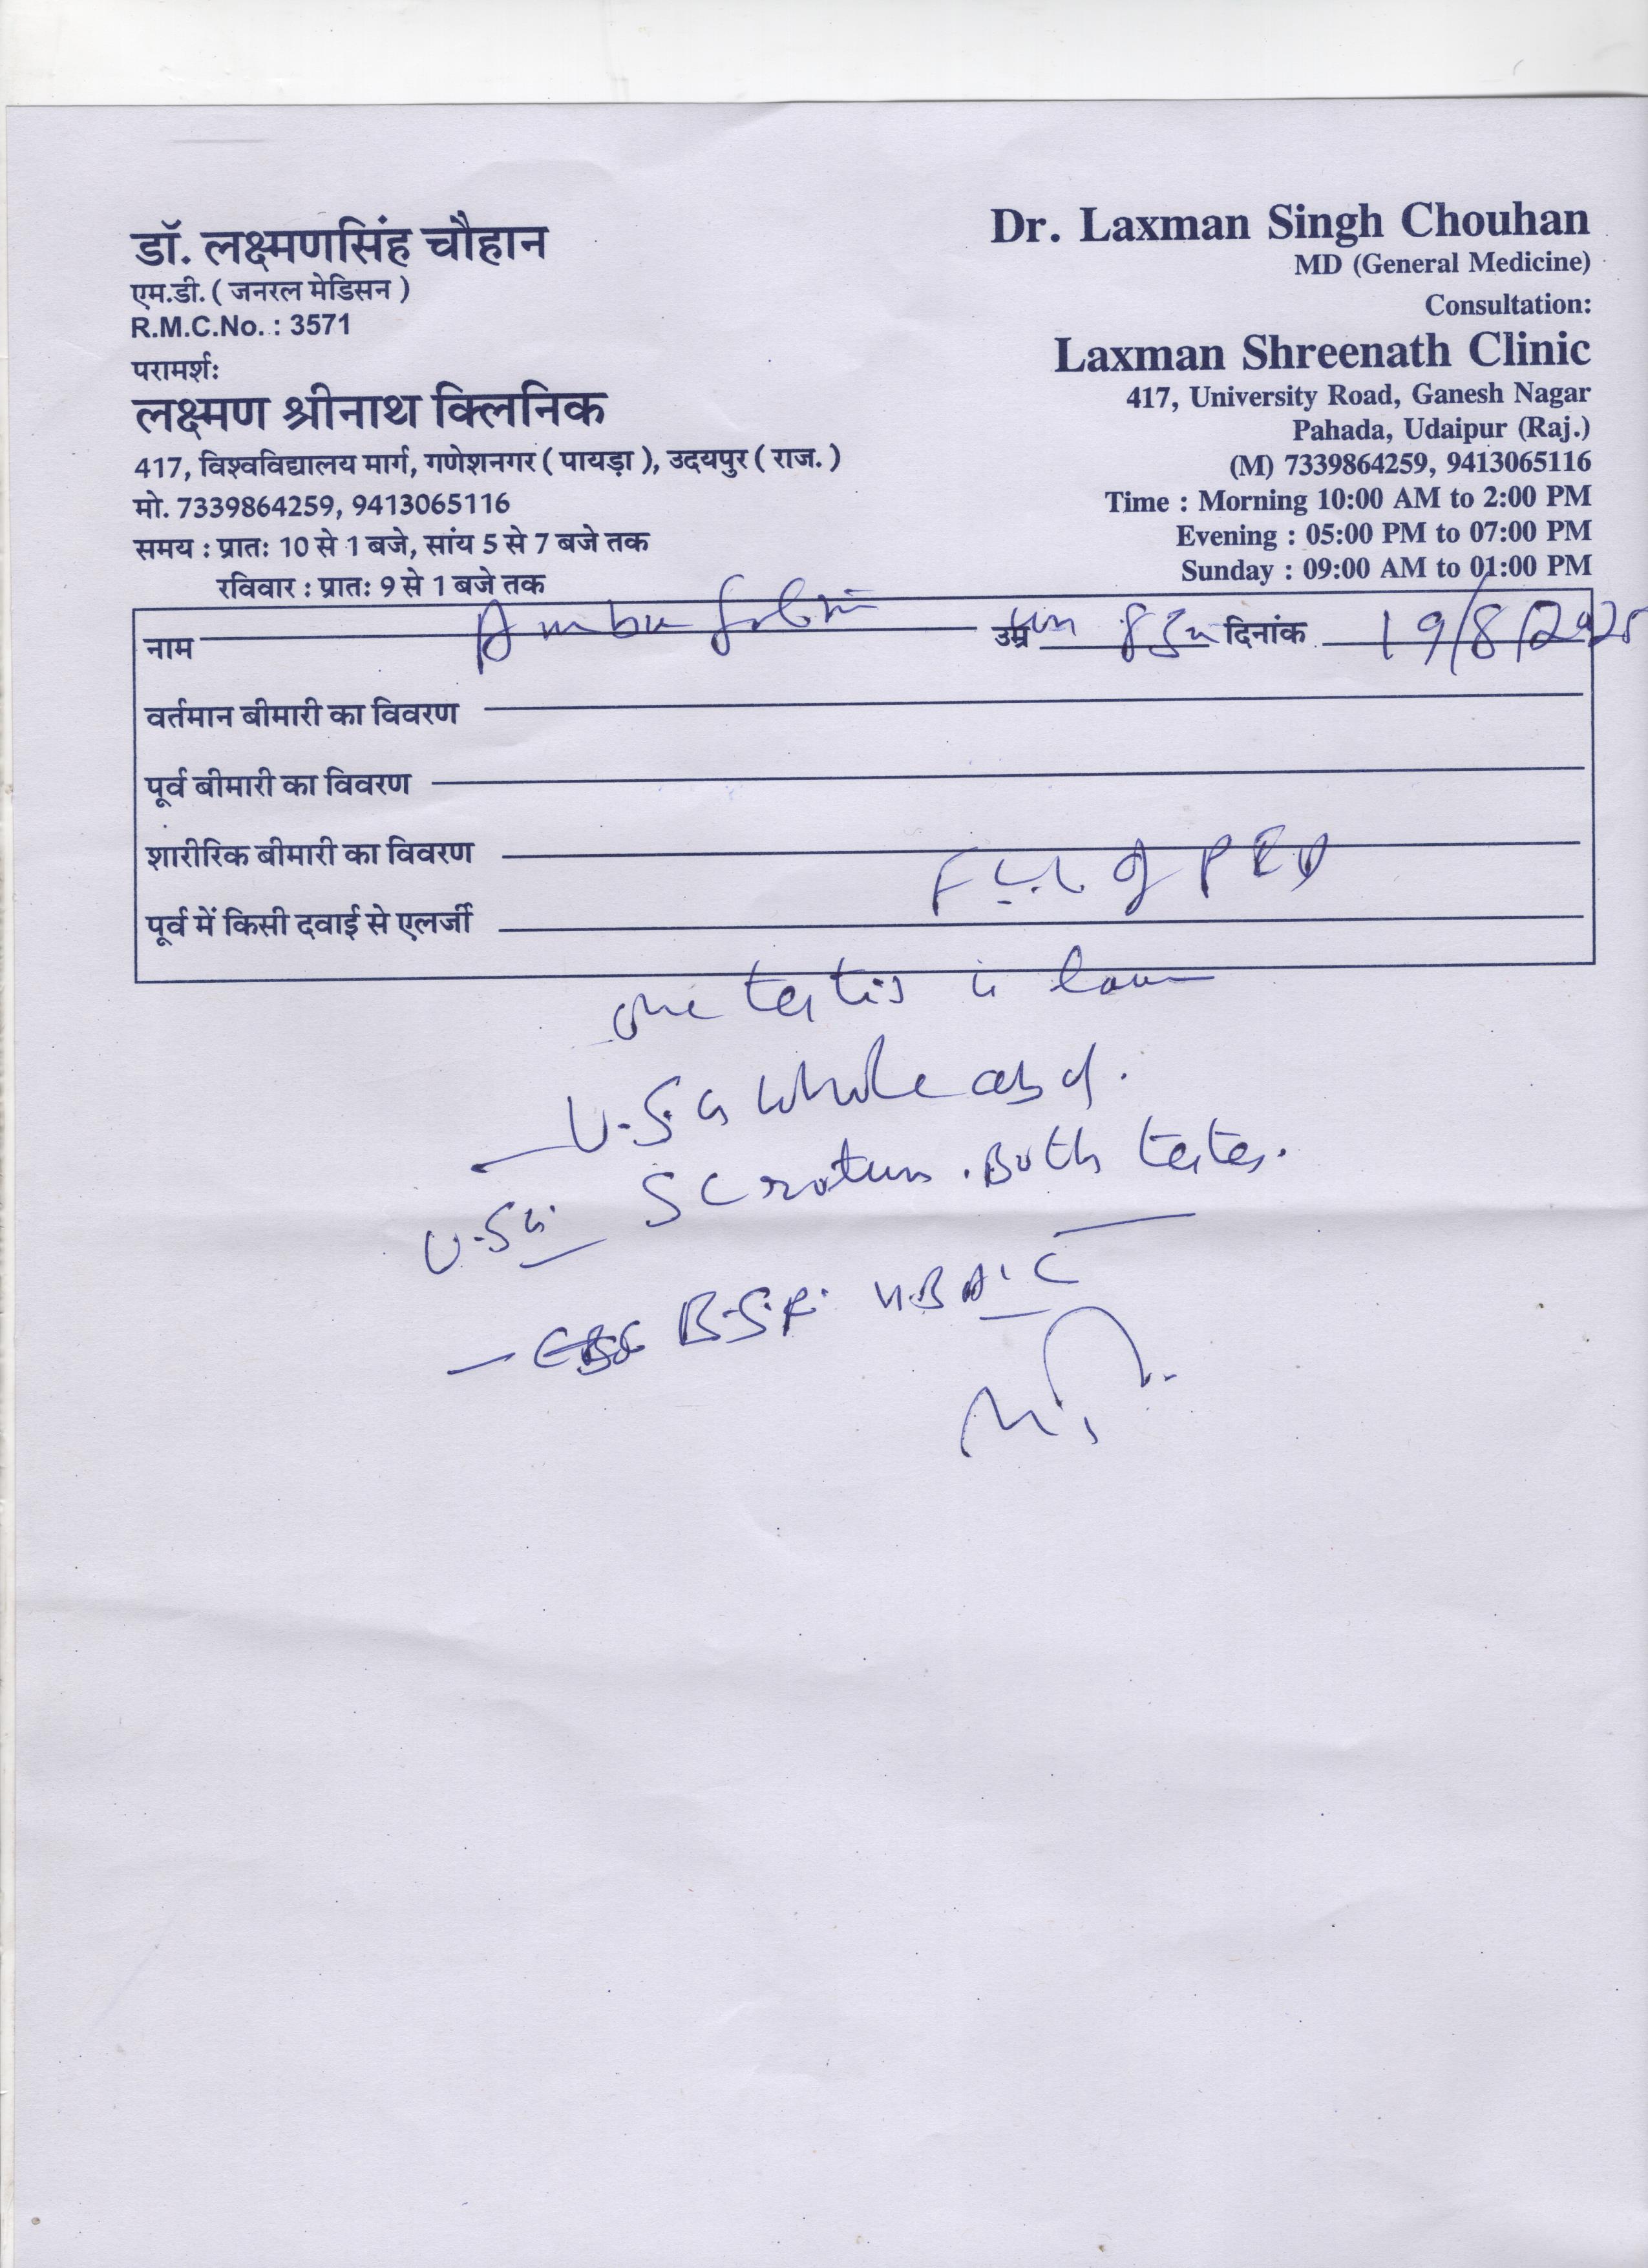 डॉ. लक्ष्मणसिंह चौहान
एम.डी. ( जनरल मेडिसन )
R.M.C.No. : 3571
परामर्शः
लक्ष्मण श्रीनाथ क्लिनिक
417, विश्वविद्यालय मार्ग, गणेशनगर ( पायड़ा ), उदयपुर ( राज. )
मो. 7339864259, 9413065116
समय : प्रातः 10 से 1 बजे, सांय 5 से 7 बजे तक
रविवार : प्रातः 9 से 1 बजे तक
Dr. Laxman Singh Chouhan
MD (General Medicine)
Consultation:
Laxman Shreenath Clinic
417, University Road, Ganesh Nagar
Pahada, Udaipur (Raj.)
(M) 7339864259, 9413065116
Time : Morning 10:00 AM to 2:00 PM
Evening : 05:00 PM to 07:00 PM
Sunday : 09:00 AM to 01:00 PM
नाम उम्र दिनांक 19/8/2025
वर्तमान बीमारी का विवरण
पूर्व बीमारी का विवरण
शारीरिक बीमारी का विवरण
पूर्व में किसी दवाई से एलर्जी
one testis is
U.S.G whole abd.
U.S.G. Scrotum. Both testes.
B.S.F. HBA1C